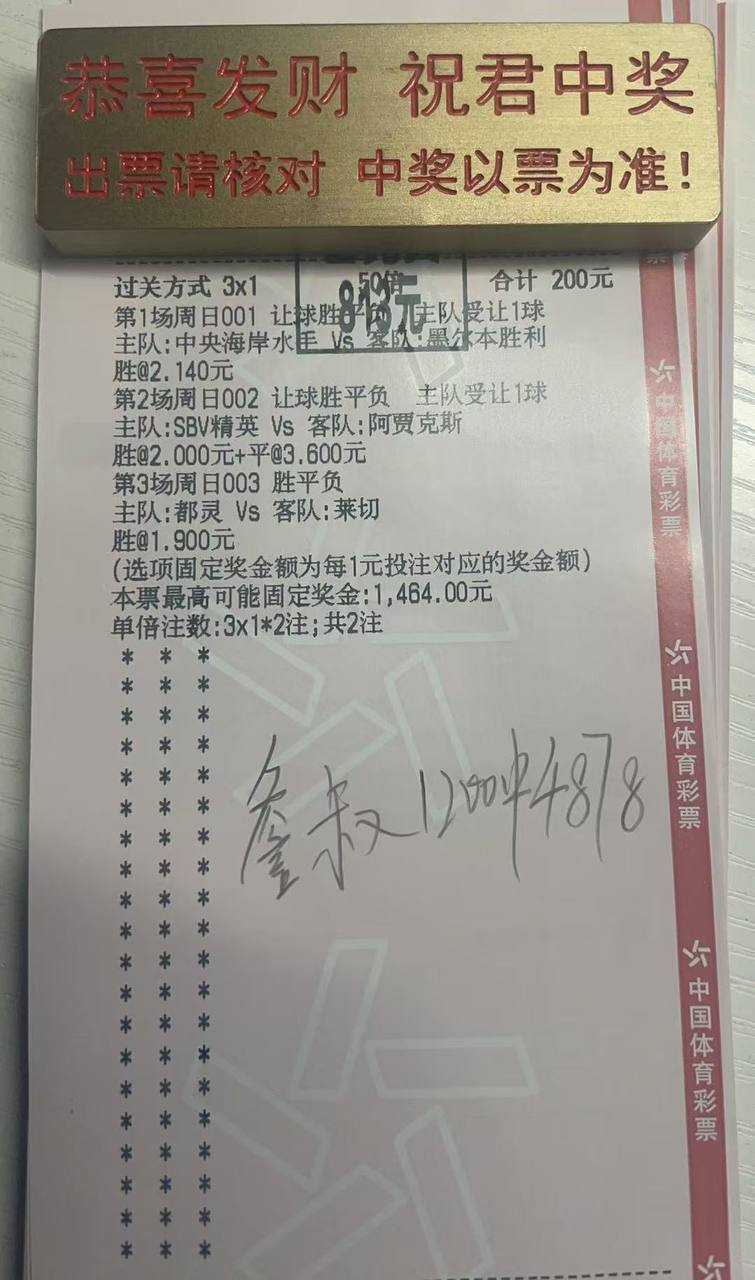 恭喜发财 祝君中奖
出票请核对 中奖以票为准!
过关方式 3x1 50倍 合计 200元
813元
第1场周日001 让球胜平负 主队受让1球
主队:中央海岸水手 Vs 客队:墨尔本胜利
胜@2.140元
第2场周日002 让球胜平负 主队受让1球
主队:SBV精英 Vs 客队:阿贾克斯
胜@2.000元+平@3.600元
第3场周日003 胜平负
主队:都灵 Vs 客队:莱切
胜@1.900元
(选项固定奖金额为每1元投注对应的奖金额)
本票最高可能固定奖金:1,464.00元
单倍注数:3x1*2注;共2注
* * *
* * *
* * *
* * *
* * *
* * *
* * *
* * *
* * *
* * *
* * *
* * *
* * *
* * *
* * *
* * *
* * *
* * *
* * *
* * *
詹叔1200中4878
票
中国体育彩票
中国体育彩票
中国体育彩票